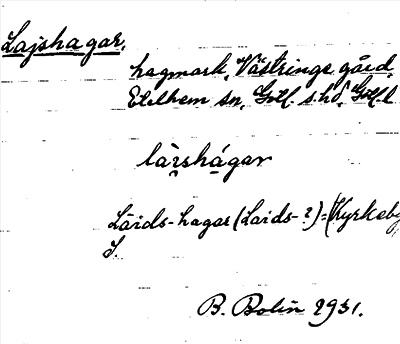 Lajshagar.
hagmark, Västringe gård,
Etelhem sn, Gotl. s. hd, Gotl. l
làrshágar
Laids-hagar (Laids-?) = (Kyrkeby
S.
B. Bolin 1931.